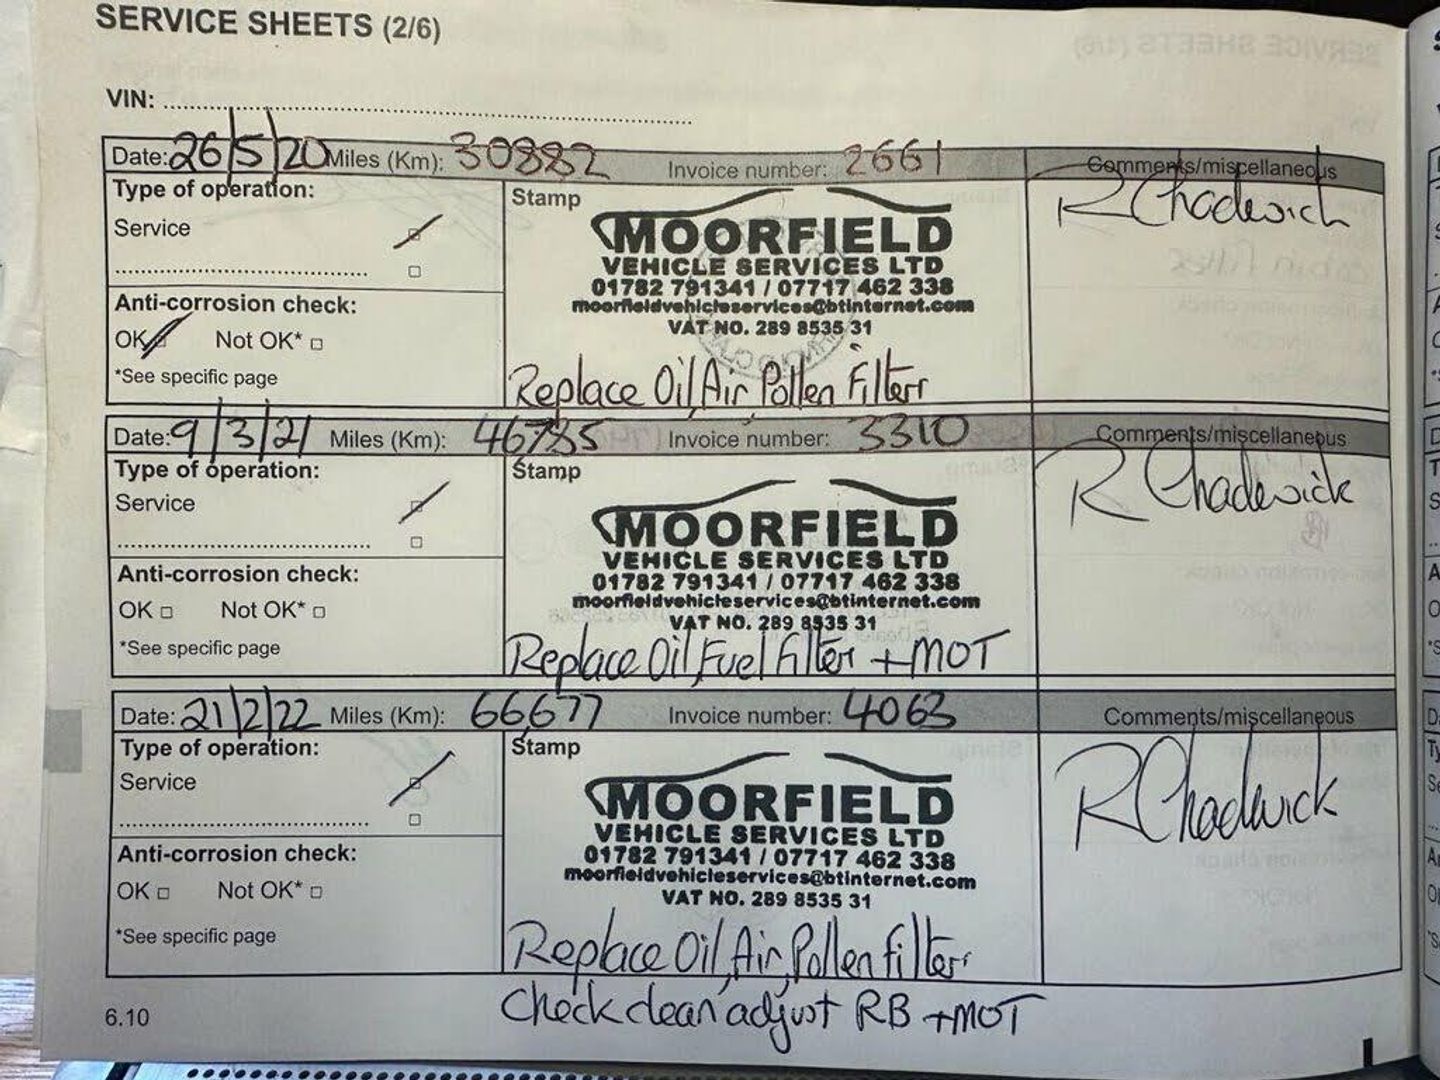 SERVICE SHEETS (2/6)
VIN:
Date: 26/5/20 Miles (Km): 30882 Invoice number: 2661 Comments/miscellaneous
Type of operation: Stamp R Chadwick
Service MOORFIELD
VEHICLE SERVICES LTD
01782 791341 / 07717 462 338
Anti-corrosion check: moorfieldvehicleservices@btinternet.com
OK Not OK* VAT NO. 289 8535 31
*See specific page Replace Oil, Air, Pollen Filters
Date: 9/3/21 Miles (Km): 46785 Invoice number: 3310 Comments/miscellaneous
Type of operation: Stamp R Chadwick
Service MOORFIELD
VEHICLE SERVICES LTD
Anti-corrosion check: 01782 791341 / 07717 462 338
OK Not OK* moorfieldvehicleservices@btinternet.com
VAT NO. 289 8535 31
*See specific page Replace Oil, Fuel Filter + MOT
Date: 21/2/22 Miles (Km): 66677 Invoice number: 4063 Comments/miscellaneous
Type of operation: Stamp R Chadwick
Service MOORFIELD
VEHICLE SERVICES LTD
Anti-corrosion check: 01782 791341 / 07717 462 338
moorfieldvehicleservices@btinternet.com
OK Not OK* VAT NO. 289 8535 31
*See specific page Replace Oil, Air, Pollen filters
6.10 Check clean adjust RB + MOT